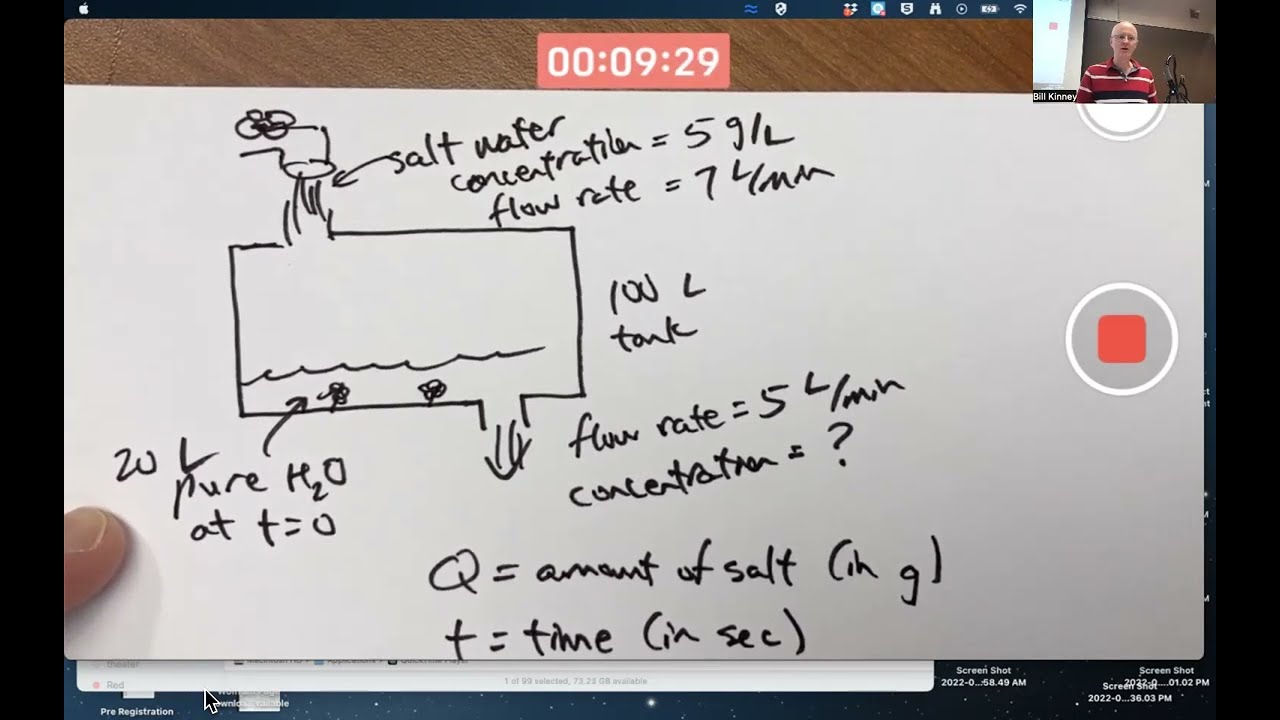 00:09:29
Bill Kinney
salt water
concentration = 5 g/L
flow rate = 7 L/min
100 L
tank
flow rate = 5 L/min
concentration = ?
20 L
pure H₂O
at t=0
Q = amount of salt (in g)
t = time (in sec)
theater
Macintosh HD › Applications › QuickTime Player
1 of 99 selected, 73.23 GB available
Red
Pre Registration
Screen Shot
2022-0....58.49 AM
Screen Shot
2022-0....01.02 PM
Screen Shot
2022-0....36.03 PM